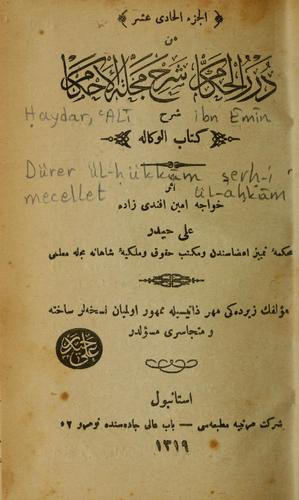 الجزء الحادى عشر
من
درر الحكام شرح مجلة الاحكام
Ḥaydar, ʿAlī ibn Emīn
شرح
كتاب الوكاله
Dürer ül-ḥükkām şerḥ-i
mecellet ül-aḥkām
اثر
خواجه امين افندى زاده
على حيدر
محكمهٔ تميز اعضاسندن ومكتب حقوق وملكيهٔ شاهانه مجله معلمى
مؤلفك زيرده كى مهر ذاتيسيله ممهور اولميان نسخه لر ساخته
ومتجاسرى مسؤلدر
على حيدر
استانبول
شركت مرتبيه مطبعه سى — باب عالى جاده سنده نومرو ٥٢
١٣١٩